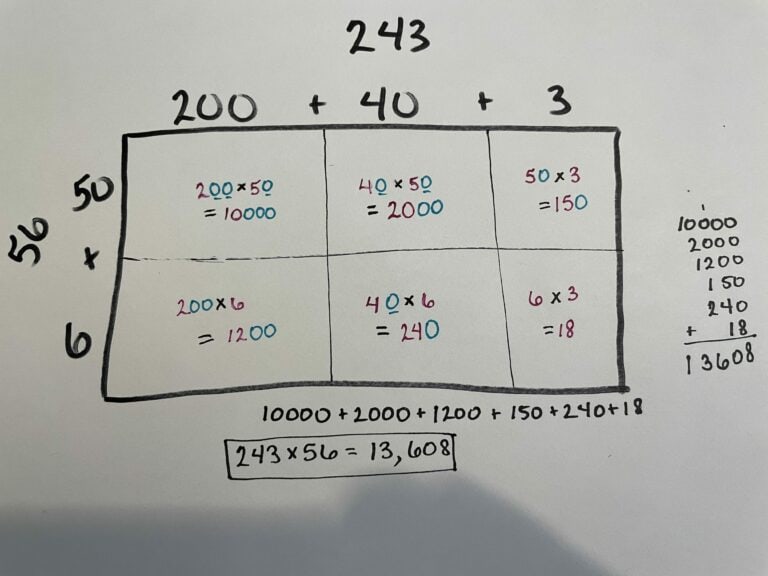 243
200 + 40 + 3
56
50 + 6
200 × 50
= 10000
40 × 50
= 2000
50 × 3
= 150
200 × 6
= 1200
40 × 6
= 240
6 × 3
= 18
10000 + 2000 + 1200 + 150 + 240 + 18
243 × 56 = 13,608
1
10000
2000
1200
150
240
+ 18
13608